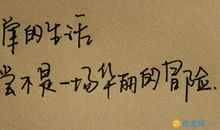 岸的生活
尝不是一场华丽的冒险.